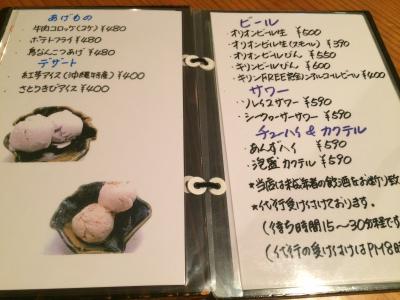 あげもの
・牛肉コロッケ(2ケ) ¥480
・ポテトフライ ¥480
・鳥なんこつあげ ¥480
デザート
・紅芋アイス(沖縄特産) ¥400
・さとうきびアイス ¥400
ビール
・オリオンビール生 ¥500
・オリオンビール生(生モール) ¥390
・オリオンビールびん ¥550
・キリンビールびん ¥600
・キリンFREE ノンアルコールビール ¥400
サワー
サワー ¥590
・シークヮーサーサワー ¥590
チューハイ & カクテル
・あんずハイ ¥590
・泡盛カクテル ¥590
★当店は未成年者の飲酒をお断り致
★代行受け付けております。
(待ち時間15〜30分程です
(代行の受け付けはPM8時